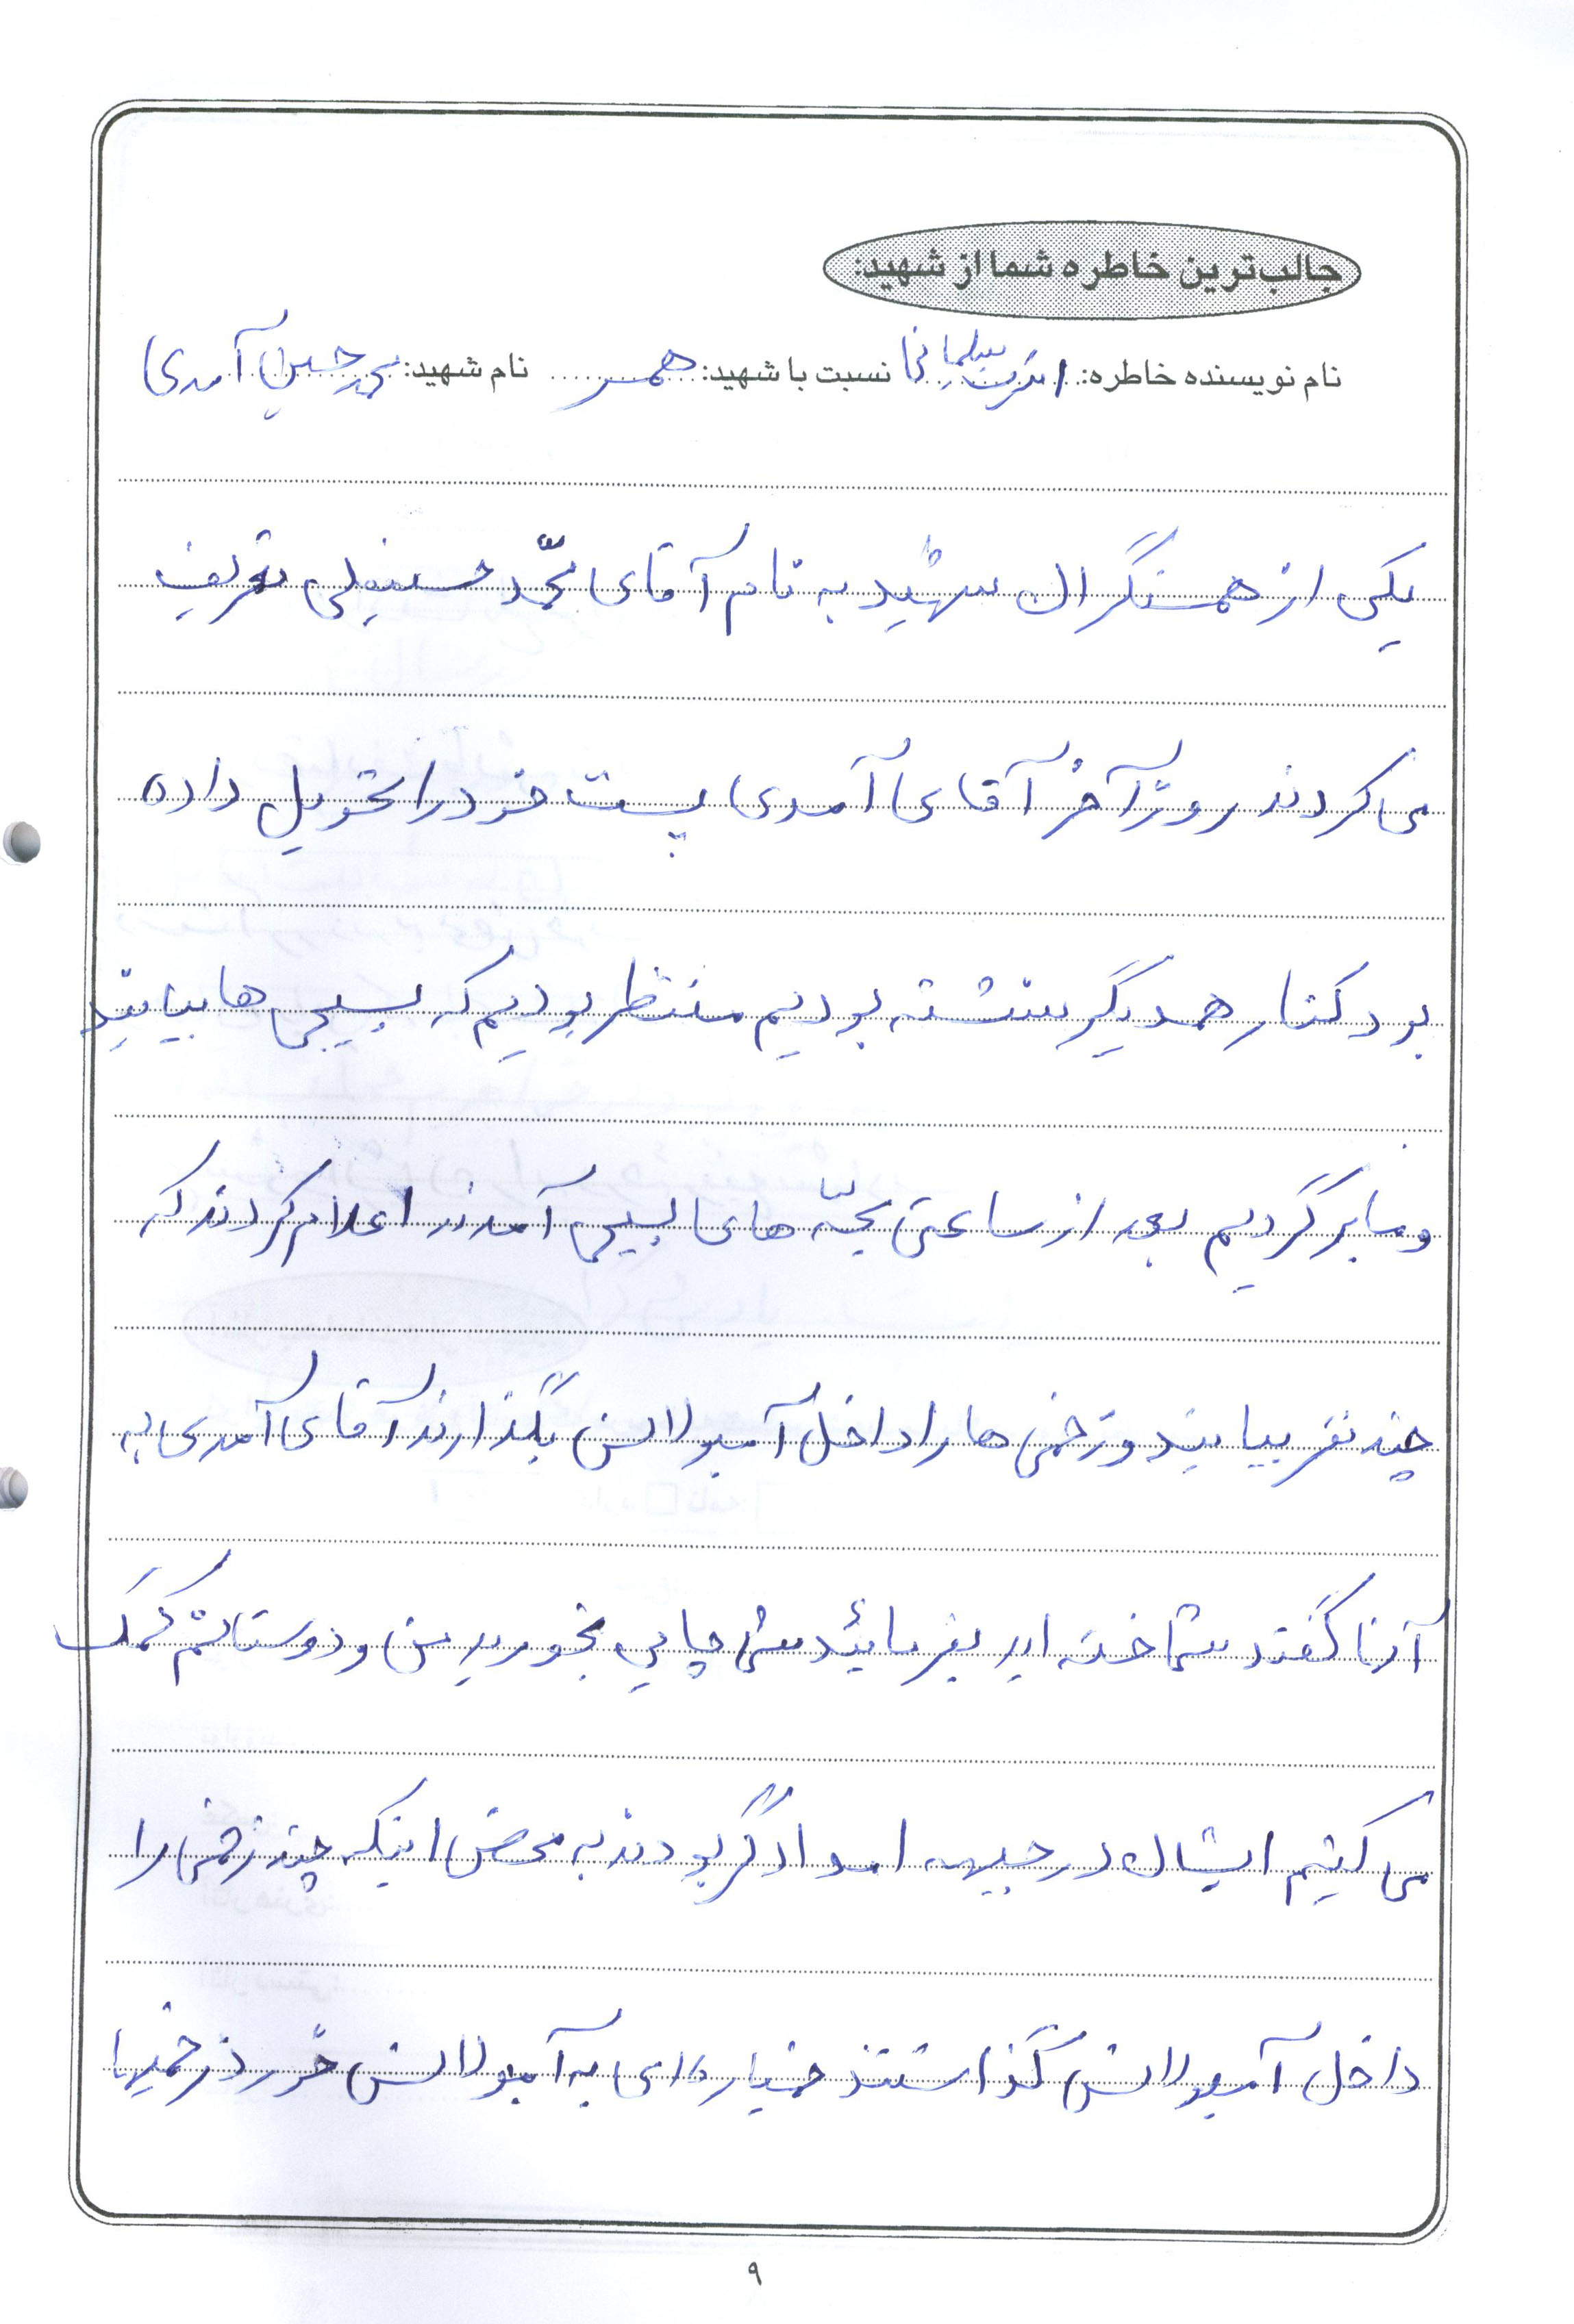 جالب‌ترین خاطره شما از شهید:
نام نویسنده خاطره: سلیمانی نسبت با شهید: همسر نام شهید: محمد حسین آمدی
یکی از همسنگران شهید به نام آقای محمّد حسینعلی تعریف
می کردند روز آخر آقای آمدی پست خود را تحویل داده
بود کنار همدیگر نشسته بودیم منتظر بودیم که بسیجی ها بیایند
و ما برگردیم بعد از ساعتی بچّه های بسیجی آمدند اعلام کردند که
چند نفر بیایند و زخمی ها را داخل آمبولانس بگذارند آقای آمدی به
آنها گفتند شما خسته اید بفرمائید شما چایی بخورید من و دوستانم کمک
می کنیم ایشان در جبهه امدادگر بودند به محض اینکه چند زخمی را
داخل آمبولانس گذاشتند خمپاره ای به آمبولانس خورد زخمیها
۹